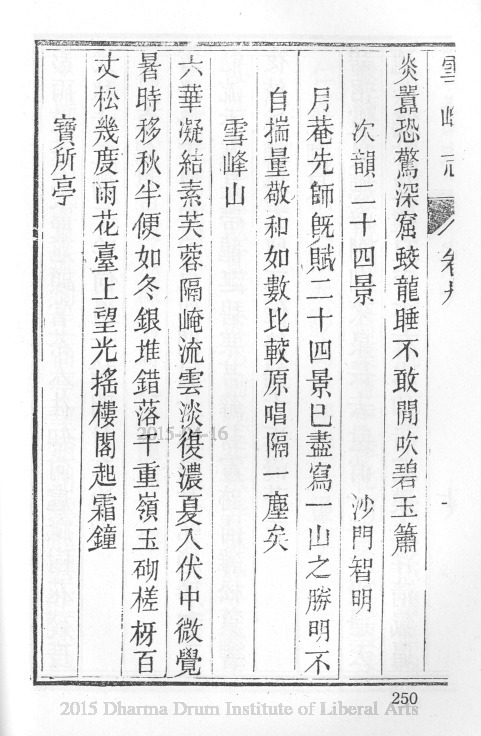 雪峰志
卷九
炎囂恐驚深窟蛟龍睡不敢閒吹碧玉簫
次韻二十四景 沙門智明
月菴先師旣賦二十四景已盡寫一山之勝明不
自揣量敬和如數比較原唱隔一塵矣
雪峰山
六華凝結素芙蓉隔崦流雲淡復濃夏入伏中微覺
暑時移秋半便如冬銀堆錯落千重嶺玉砌槎枒百
丈松幾度雨花臺上望光搖樓閣起霜鐘
寶所亭
250
2015 Dharma Drum Institute of Liberal Arts